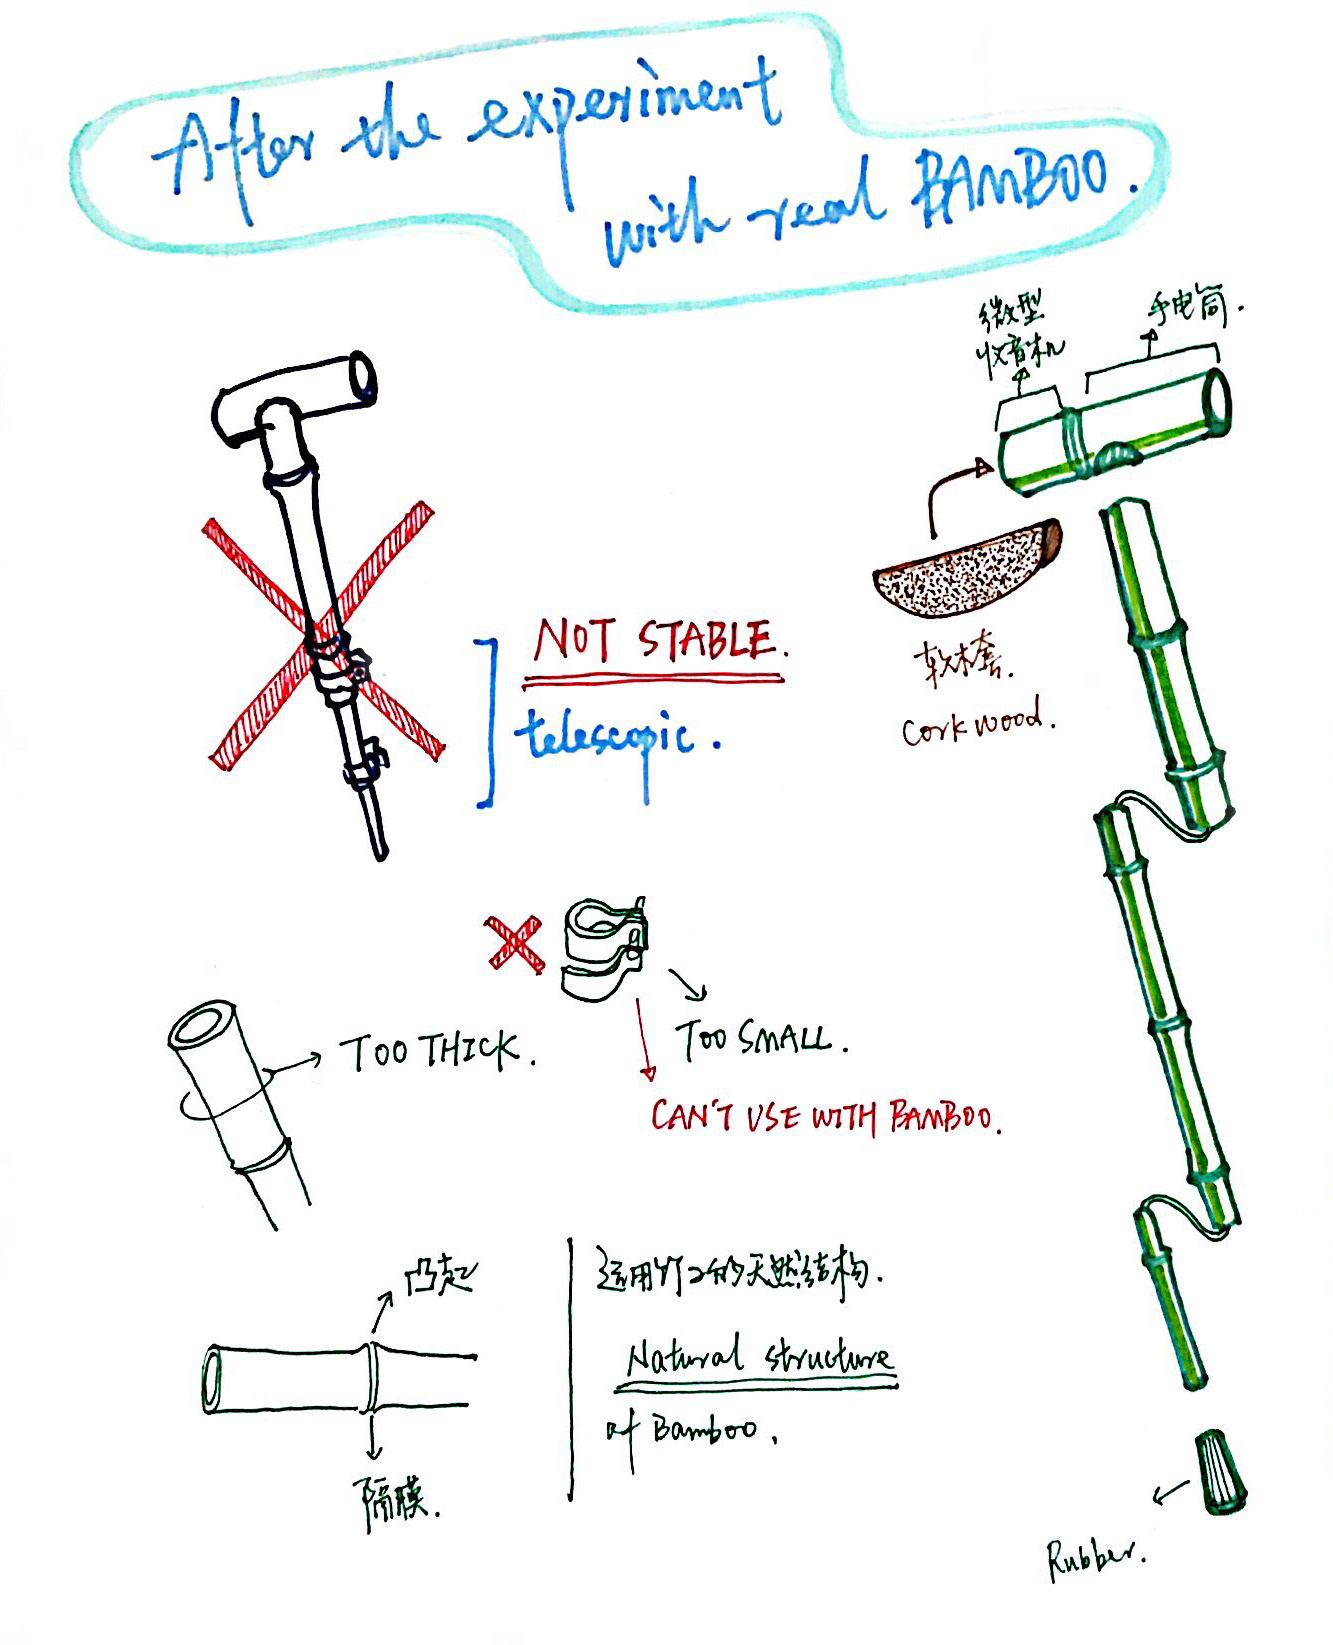 After the experiment
with real BAMBOO.
微型
收音机
手电筒.
NOT STABLE.
telescopic.
软木套.
Cork wood.
TOO THICK.
TOO SMALL.
CAN'T USE WITH BAMBOO.
凸起
隔膜.
运用竹子的天然结构.
Natural structure
of Bamboo.
Rubber.